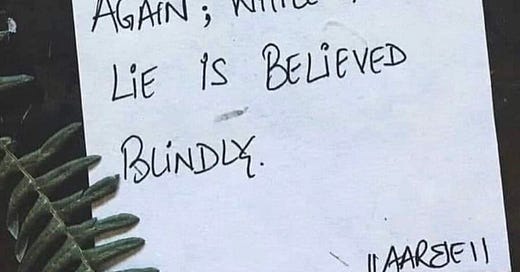 AGAIN; WHILE
LIE IS BELIEVED
BLINDLY.